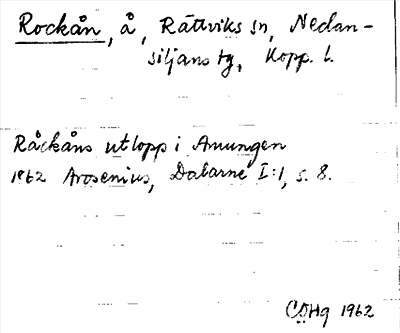 Rockån, å, Rättviks sn, Nedan-
siljans tg, Kopp. l.
Råckåns utlopp i Amungen
1862 Arosenius, Dalarne I:1, s. 8.
CÖHg 1962